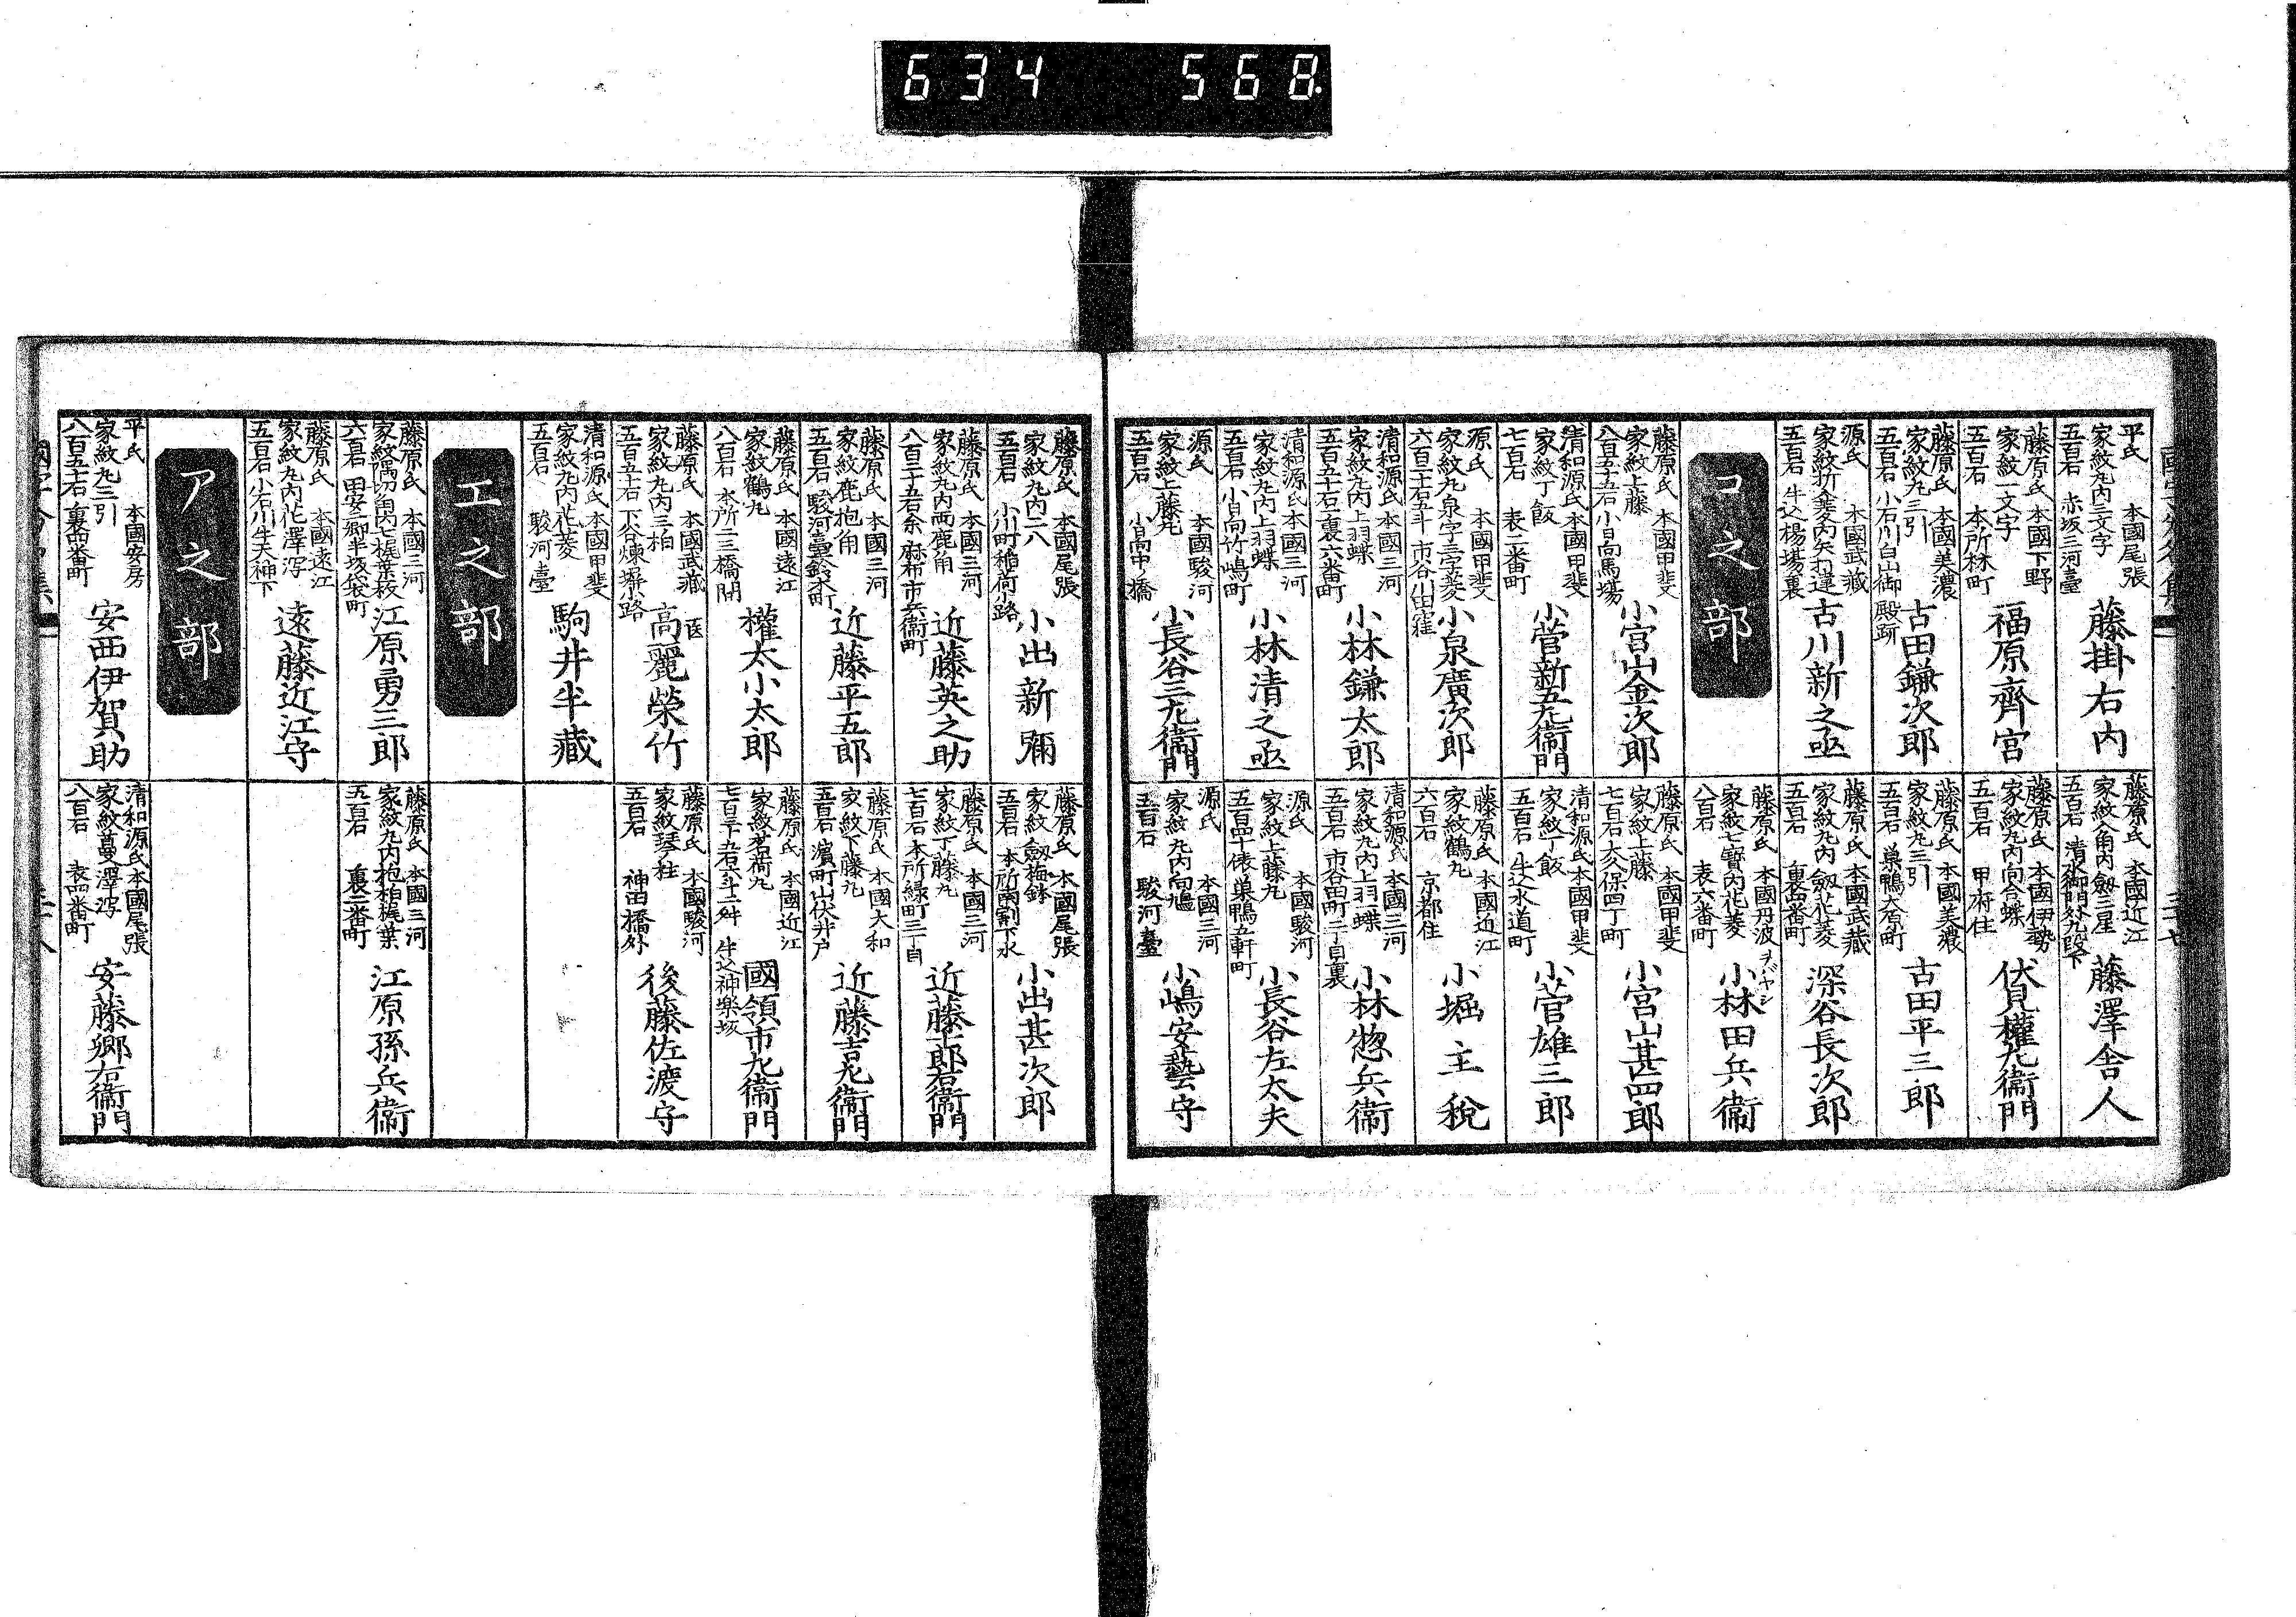 634 568
平氏 本國尾張
家紋丸内三文字
五百石 赤坂三河臺
藤掛右内
藤原氏 本國下野
家紋一文字
五百石 本所林町
福原齊宮
藤原氏 本國美濃
家紋丸三引
五百石 小石川白山御殿跡
古田鎌次郎
源氏 本國武藏
五百石 牛込楊場裏
古川新之亟
コ之部
藤原氏 本國甲斐
家紋上藤
八百五十五石 小日向馬場
小宮山金次郎
清和源氏 本國甲斐
家紋丁飯
七百石 表二番町
小菅新五左衞門
源氏 本國甲斐
家紋丸泉字三字菱
六百三十石五斗 市谷川田窪
小泉廣次郎
清和源氏 本國三河
家紋丸内上羽蝶
五百五十石 裏六番町
小林鎌太郎
清和源氏 本國三河
家紋丸内上羽蝶
五百石 小日向竹嶋町
小林清之亟
源氏 本國駿河
家紋上藤丸
五百石 小日向中橋
小長谷三左衞門
藤原氏 本國近江
家紋八角内劔三星
五百石 清水御門外九段下
藤澤舎人
藤原氏 本國伊勢
家紋丸内向合蝶
五百石 甲府住
伏見權左衞門
藤原氏 本國美濃
家紋丸三引
五百石 巣鴨大原町
古田平三郎
藤原氏 本國武藏
家紋丸内劔花菱
五百石 裏四番町
深谷長次郎
藤原氏 本國丹波
家紋七寶内花菱
八百石 表六番町
ヲバヤシ
小林田兵衞
藤原氏 本國甲斐
家紋上藤
七百石 大久保四丁町
小宮山甚四郎
清和源氏 本國甲斐
家紋丁飯
五百石 牛込水道町
小菅雄三郎
藤原氏 本國近江
家紋鶴丸
六百石 京都住
小堀主税
清和源氏 本國三河
家紋丸内上羽蝶
五百石 市谷田町二丁目裏
小林惣兵衞
源氏 本國駿河
家紋上藤丸
五百四十俵 巣鴨五軒町
小長谷左太夫
源氏 本國三河
家紋丸内向鳩
五百石 駿河臺
小嶋安藝守
藤原氏 本國尾張
家紋丸内二八
五百石 小川町稲荷小路
小出新彌
藤原氏 本國三河
家紋丸内両鹿角
八百二十五石余 麻布市兵衞町
近藤英之助
藤原氏 本國三河
家紋鹿抱角
五百石 駿河臺鈴木町
近藤平五郎
藤原氏 本國遠江
家紋鶴丸
八百石 本所二三橋間
權太小太郎
藤原氏 本國武藏
家紋丸内三柏
五百五十石 下谷煉塀小路
医
高麗榮竹
清和源氏 本國甲斐
家紋丸内花菱
五百石 駿河臺
駒井半藏
エ之部
藤原氏 本國三河
六百石 田安二卿半坂袋町
江原勇三郎
藤原氏 本國遠江
家紋丸内花澤瀉
五百石 小石川牛天神下
遠藤近江守
ア之部
平氏 本國安房
家紋丸三引
八百五十石 裏四番町
安西伊賀助
藤原氏 本國尾張
家紋劔梅鉢
五百石 本所南割下水
小出甚次郎
藤原氏 本國三河
家紋下藤丸
七百石 本所緑町三丁目
近藤十郎右衞門
藤原氏 本國大和
家紋下藤丸
五百石 濱町山伏井戸
近藤吉左衞門
藤原氏 本國近江
家紋茗荷丸
七百三十五石六斗二舛 牛込神樂坂
國領市左衞門
藤原氏 本國駿河
家紋琴柱
五百石 神田橋外
後藤佐渡守
藤原氏 本國三河
家紋丸内抱柏梶葉
五百石 裏二番町
江原孫兵衞
清和源氏 本國尾張
家紋蔓澤瀉
八百石 表四番町
安藤郷右衞門